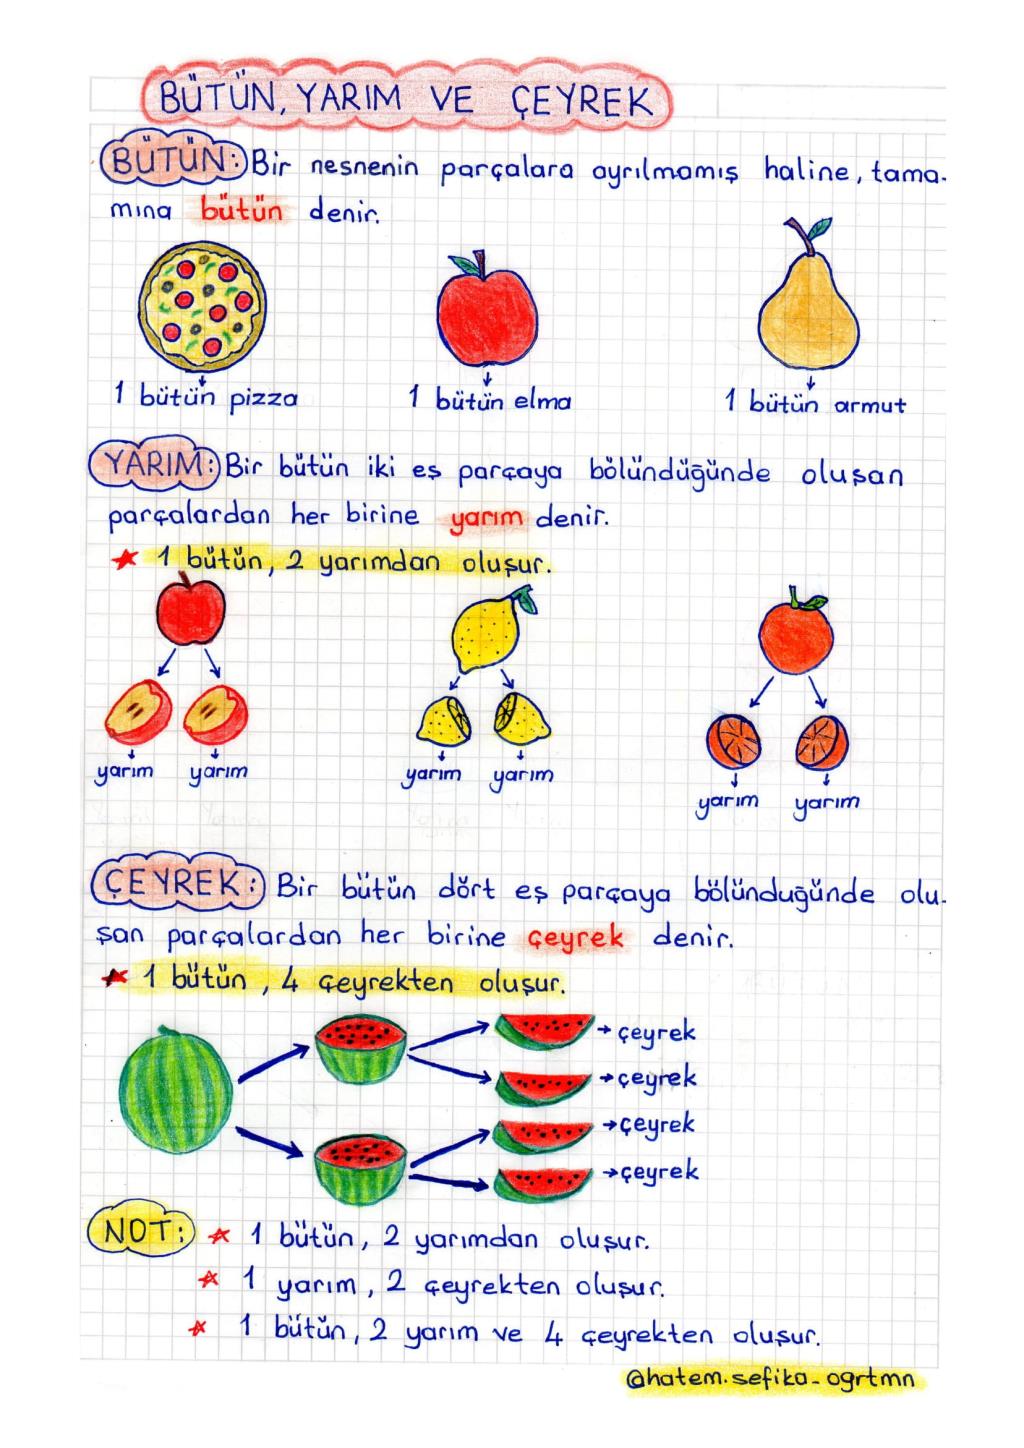 BÜTÜN, YARIM VE ÇEYREK
BÜTÜN: Bir nesnenin parçalara ayrılmamış haline, tama-
mına bütün denir.
1 bütün pizza
1 bütün elma
1 bütün armut
YARIM: Bir bütün iki eş parçaya bölündüğünde oluşan
parçalardan her birine yarım denir.
1 bütün, 2 yarımdan oluşur.
yarım yarım
yarım yarım
yarım yarım
ÇEYREK: Bir bütün dört eş parçaya bölünduğünde olu-
şan parçalardan her birine çeyrek denir.
1 bütün, 4 çeyrekten oluşur.
çeyrek
çeyrek
çeyrek
çeyrek
NOT: 1 bütün, 2 yarımdan oluşur.
1 yarım, 2 çeyrekten oluşur.
1 bütün, 2 yarım ve 4 çeyrekten oluşur.
@hatem.sefika_ogrtmn